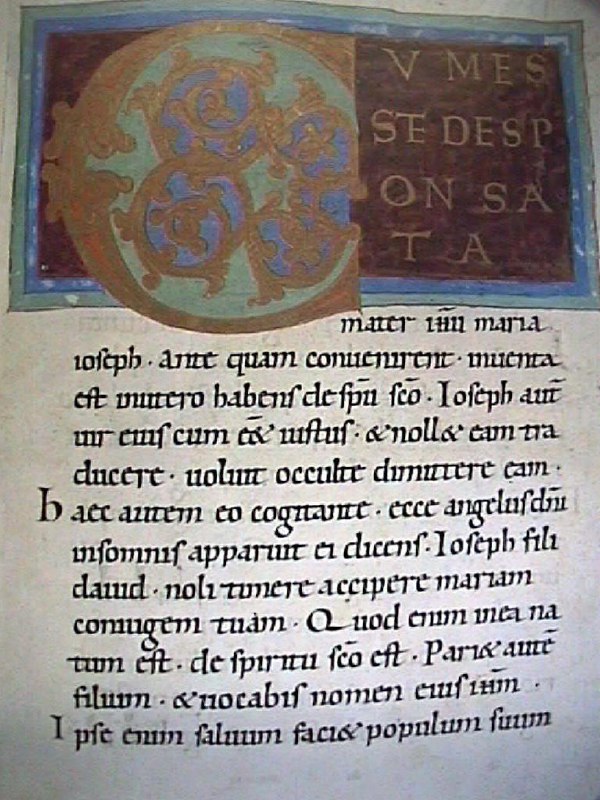 CUM ES
SET DESP
ON SA
TA
mater ihu maria
ioseph · Ante quam conuenirent · inuenta
est inutero habens de spu sco · Ioseph aut
uir eius cum eet iustus · & noll& eam tra
ducere · uoluit occulte dimittere eam ·
haec autem eo cogitante · ecce angelus dni
insomnis apparuit ei dicens · Ioseph fili
dauid · noli timere accipere mariam
coniugem tuam · Quod enim inea na
tum est · de spiritu sco est · Pari& aute
filium · & uocabis nomen eius ihm ·
Ipse enim saluum faci& populum suum